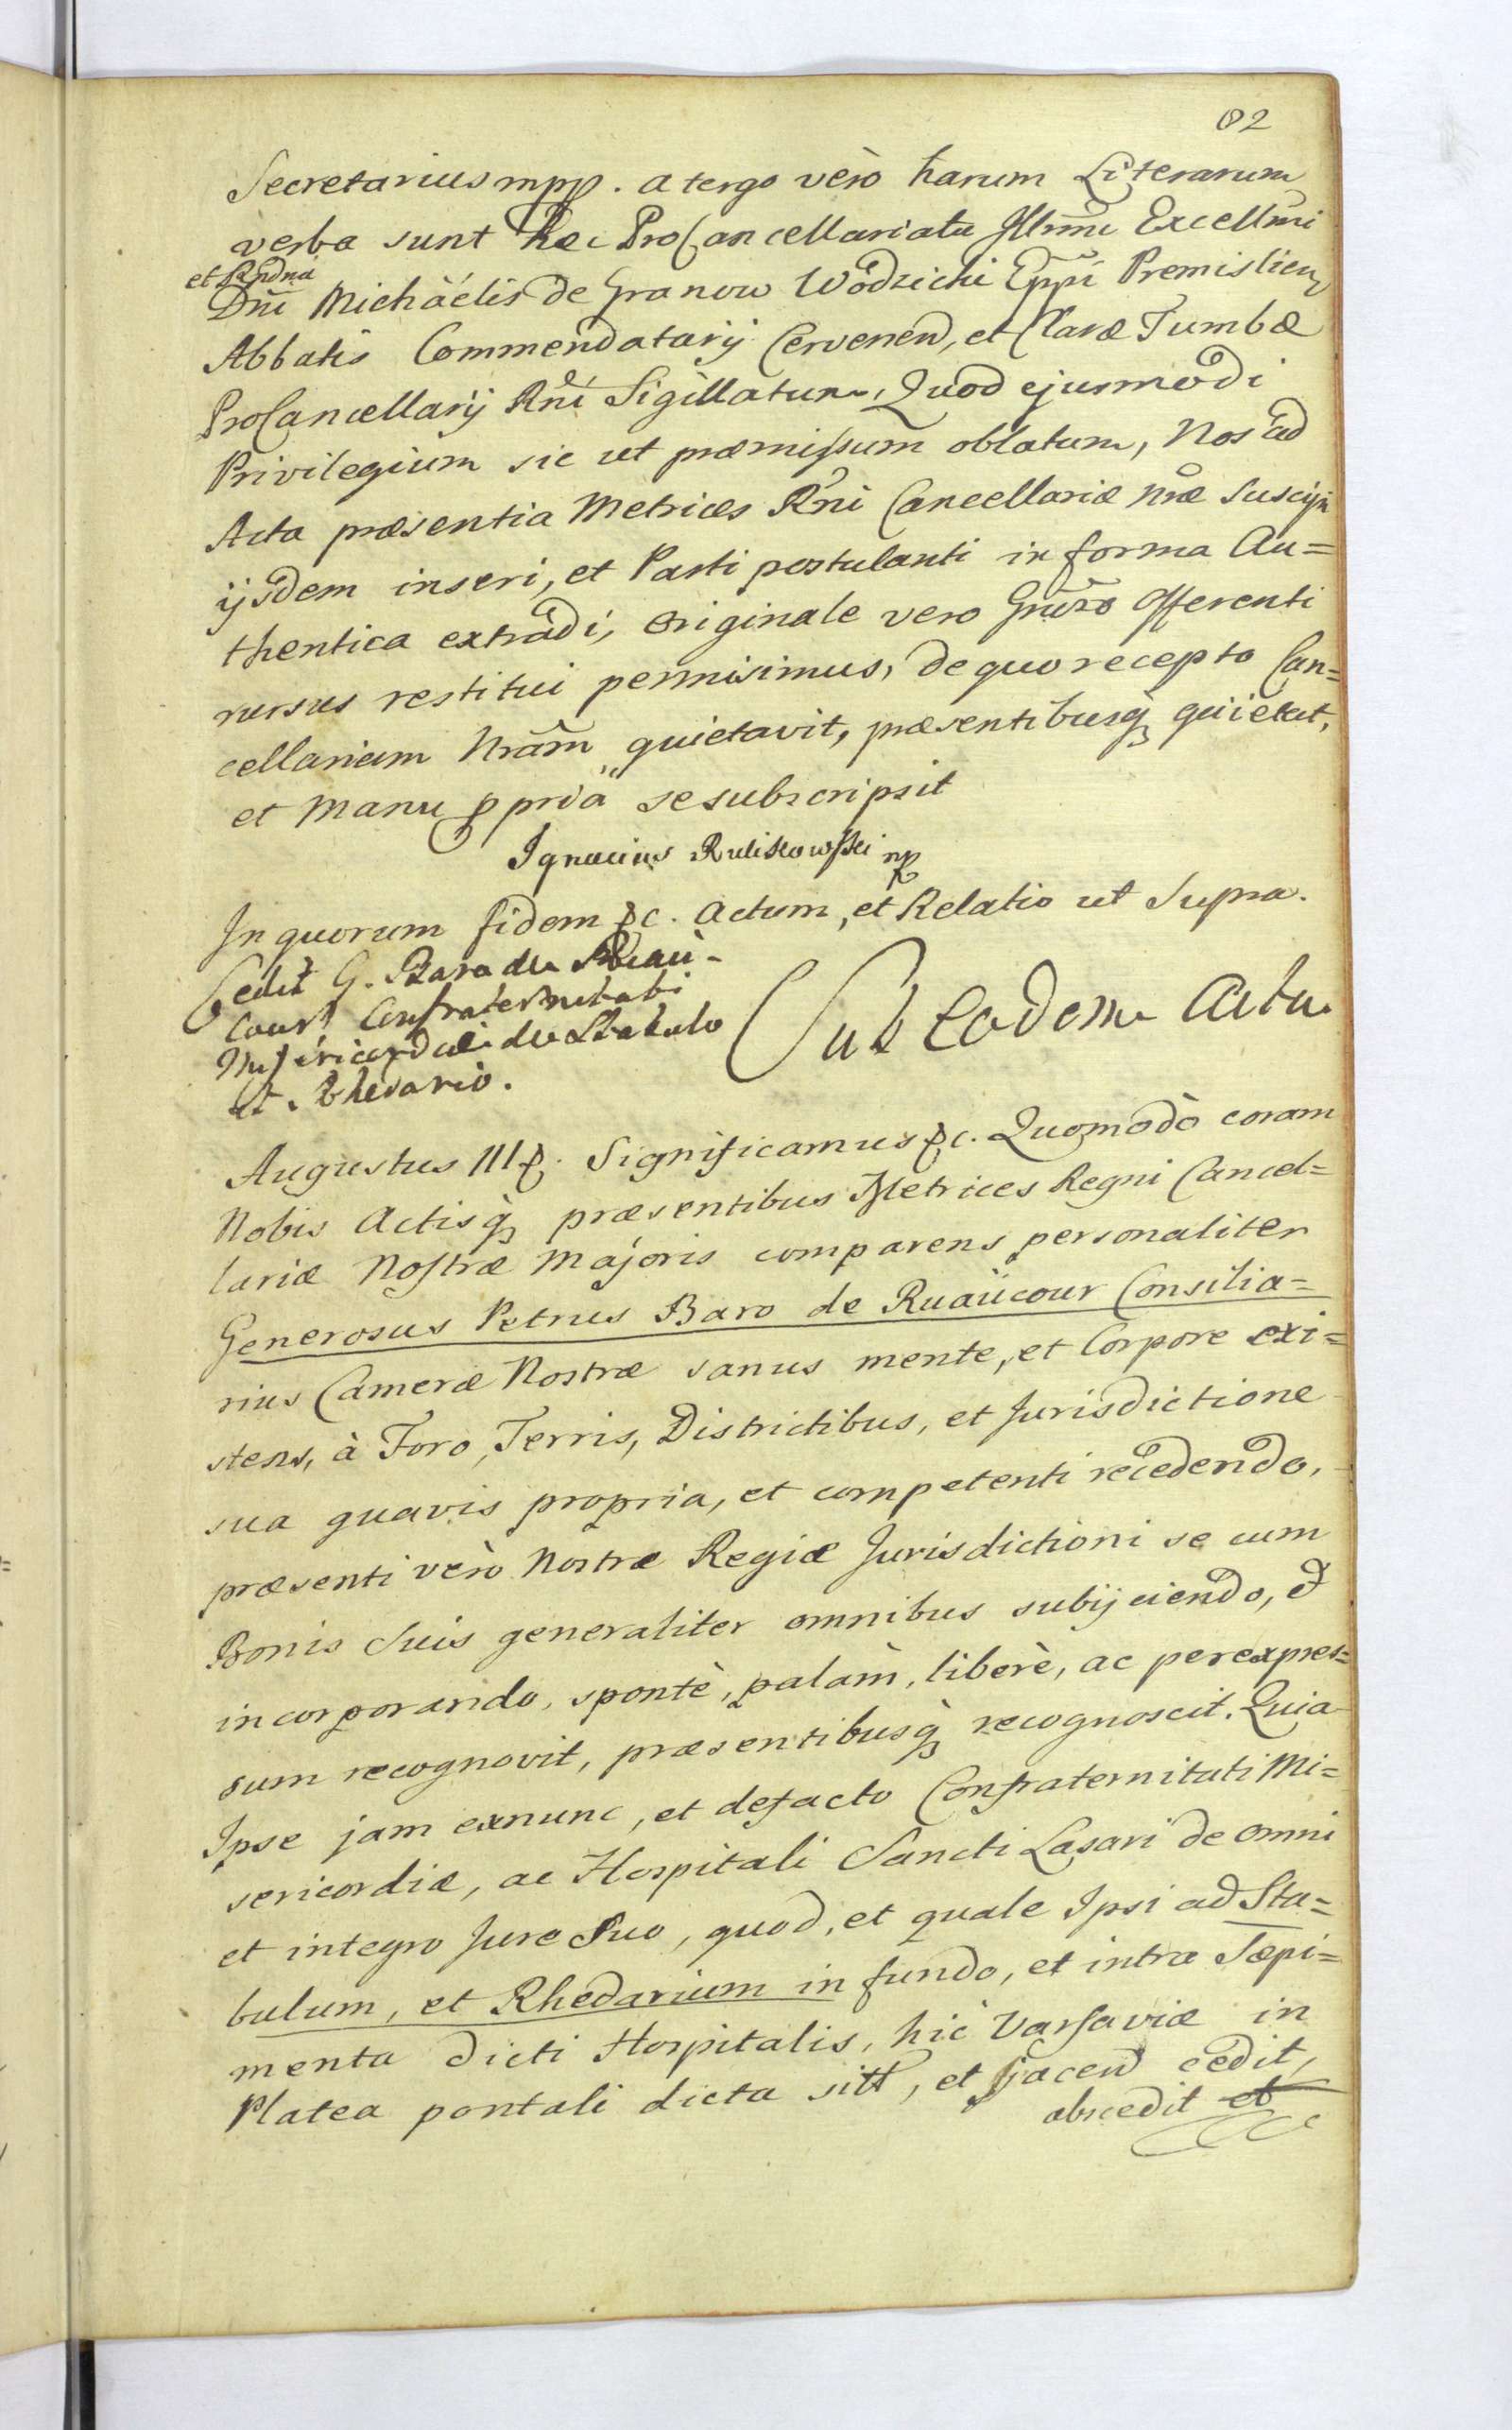 82
Secretarius mpp. a tergo vèrò harum Literarum
verba sunt hæc ProCancellariatu Illmi Excellmi
et Rndni
Dni Michäélis de Granow Wodzicki Eppi Premislien
Abbatis Commendatarij Cervenen, et Claræ Tumbæ
ProCancellarij Rni Sigillatum, Quod ejusmodi
Privilegium sic ut præmissum oblatum, Nos ad
Acta præsentia Metrices Rni Cancellariæ nræ suscipi
ijsdem inseri, et Parti postulanti in forma Au=
thentica extradi, originale vero Gnroso Offerenti
rursus restitui permisimus, de quo recepto Can=
cellariam Nram quietavit, præsentibusq quietat,
et Manu ppria se subscripsit
Ignacius Rulikowski mp
In quorum fidem &c. Actum, et Relatio ut Supra.
Cedit G. Baro de Ruau-
court Confraternitati
Misericordiæ de Stabulo
et Rhedario.
Sub Eodem Actu
Augustus III &. Significamus &c. Quomodò coram
Nobis Actisq præsentibus Metrices Regni Cancel=
lariæ Nostræ Majoris comparens personaliter
Generosus Petrus Baro de Ruaücour Consilia=
rius Cameræ Nostræ sanus mente, et Corpore exi=
stens, à Foro, Terris, Districtibus, et Jurisdictione
sua quavis propria, et competenti recedendo,
præsenti vèrò Nostræ Regiæ Jurisdictioni se cum
Bonis Suis generaliter omnibus subijciendo, &
incorporando, spontè, palàm, liberè, ac per expres=
sum recognovit, præsentibusq recognoscit. Quia
Ipse jam exnunc, et defacto Confraternitati Mi=
sericordiæ, ac Hospitali Sancti Lasari de omni
et integro Jure Suo, quod, et quale Ipsi ad Sta=
bulum, et Rhedarium in fundo, et intra Sæpi=
menta dicti Hospitalis, hic Varsaviæ in
Platea pontali dicta sitt, et jacen cedit,
abscedit et